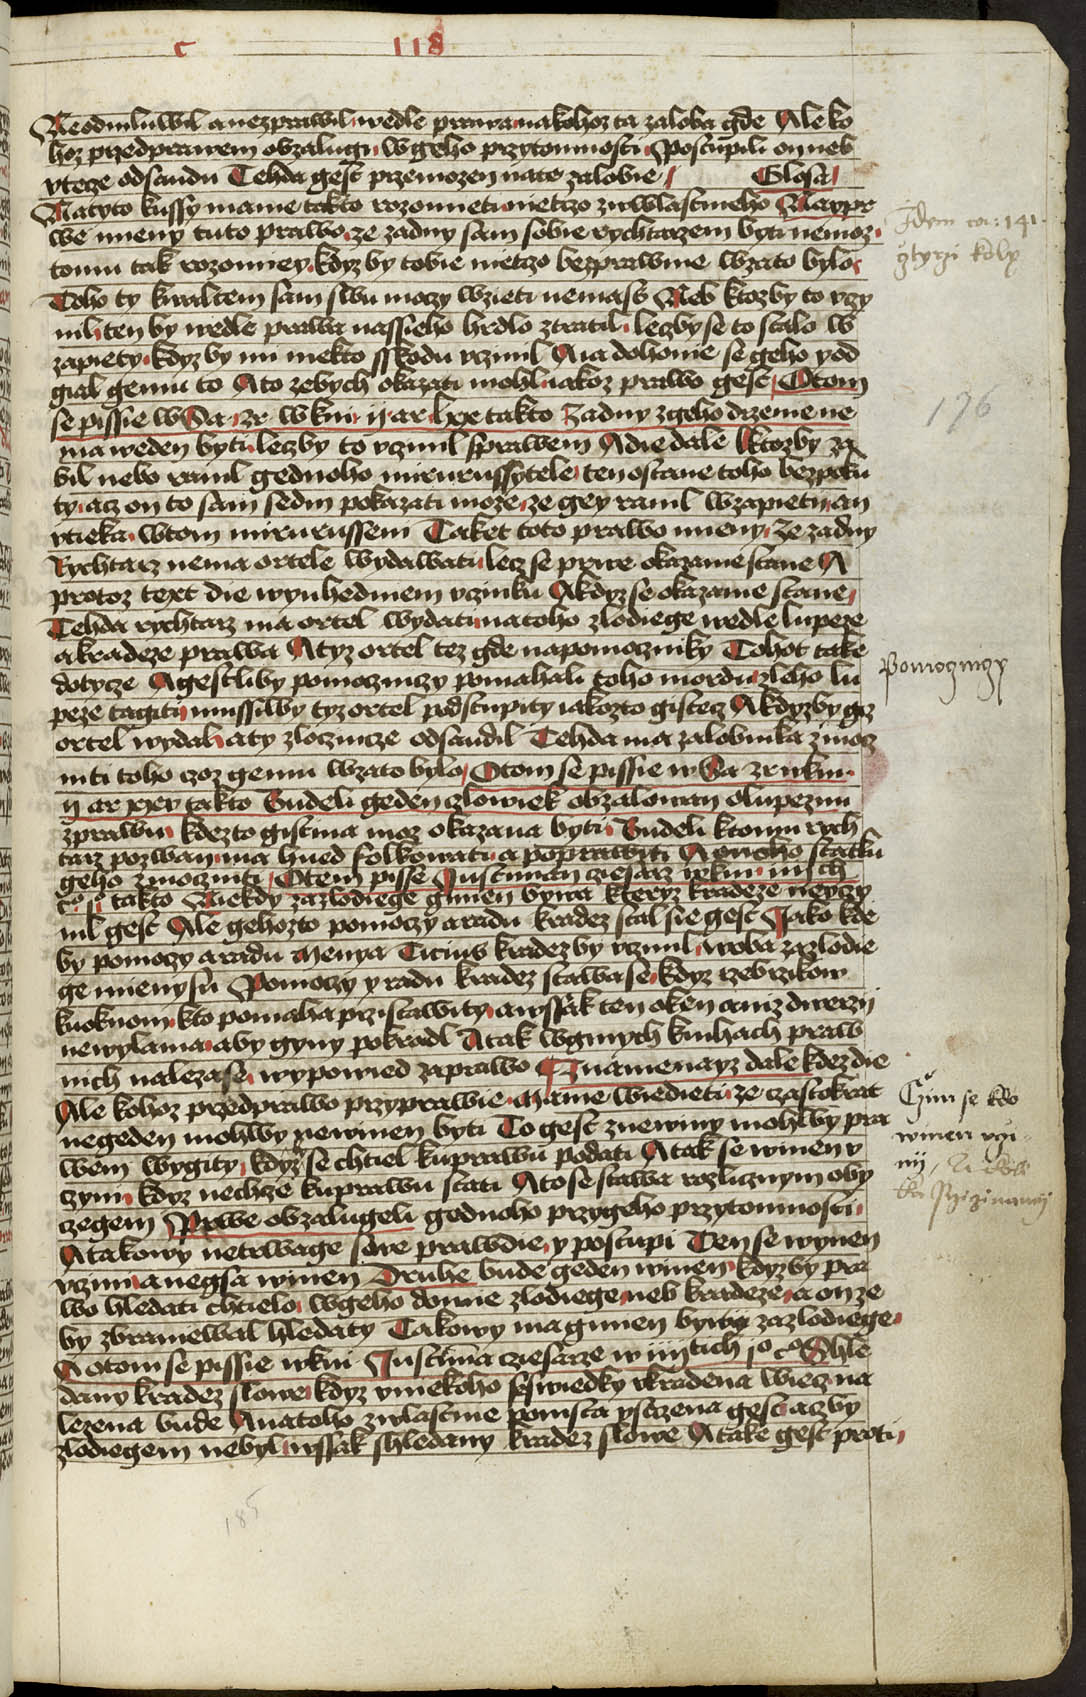 c 118
Neodmluwil anezprawil wedle prawa nakohoz ta zaloba gde Ale ko
hoz przedprawem obzalugi wgeho przytomnosti Postupili onneb
vtecze odsaudu Tehda gest przemozen nate zalobie Glosa
Natyto kussy mame takto rozometi nietczo zwlastnieho Naypr
we mieny tuto prawo ze zadny sam sobie rychtarzem byti nemoz
tomu tak rozomney kdyz by tobie nietczo bezprawnie wzato bylo
Toho ty kwaltem sam swu moczy wzieti nemass Neb ktozby to vczy
nil ten by wedle prawa nassieho hrdlo ztratil leczby se to stalo w
zapiety kdyz by mi niekto sskodu vcinil A ia dohonie se geho pod
gial gemu to Ato zebych okazati mohl iakoz prawo gest Otom
se pissie w Sa zr wkni ij ar lxx takto Zadny zgeho drzeme ne
ma weden byti leczby to vcinil sprawem A die dale Ktozby za
bil nebo ranil gednoho mirurussytele ten ostane toho bezpoku
ty acz on to sam sedm pokazati moze ze gey ranil wzapietu an
vtieka wtom mirurusseni Taket toto prawo mieny Ze zadny
Rychtarz nema ortele wydawati lecz se prwe okazanie stane A
protoz text die wynhednem vczinku A kdyz se okazanie stane
Tehda rychtarz ma ortel wydati natoho zlodiege wedle lupeze
akradeze prawa A tyz ortel tez gde napomoczniky Tohot take
dotycze A gestliby pomocznicy pomahali toho mordu zleho lu
peze tagiti mussilby tyz ortel podstupity iakozto gistecz A kdyzby giz
ortel wydal aty zlocznicze odsaudil Tehda ma zalobnika zmocz
niti toho czoz gemu wzato bylo Otom se pissie w Sa zr wkni
ij ar xxv takto Budeli geden czlowiek obzalowan olupeznu
zprawu kdezto gistina moz okazana byti Budeli ktomu rych
tarz pozwan ma hned folkowati a poprawiti A onoho statku
geho zmoczniti Otem pisse Justinian cziesarz wkni insti
takto Niekdy zazlodiege gmien bywa kteryz kradeze neyczy
nil gest Ale gehozto pomoczy aradu kradez stal sie gest Jako kde
by pomoczy aradu Menya Ticius kradez by vcinil woba zazlodie
ge mieny su Pomoczy y radu kradez stawa se kdyz rzebrzikow
kuoknom kto pomaha przistawity awssak ten oken aniz dwerzij
newylama aby gyny pokradl A tak wginych knihach praw
nich naleza se wypowied zaprawo Znamenayz dale kdez die
Ale kohoz przedprawo przyprawie Mame wiedieti ze czastokrat
negeden mohlby newinen byti To gest znewiny mohlby pra
wem wygity kdyz se chtiel kuprawu podati A tak se winen v
czyni kdyz nechze kuprawu stati Ato se stawa rozlicznym oby
czegem Prwe obzalugeli gednoho przygeho przytomnosti
A takowy netrwage swe prawdie y postupi Ten se wynen
vczini anegsa winen Druhe bude geden winen kdyz by pra
wo hledati chtielo wgeho domie zlodiege neb kradeze a on ze
by zbraniewal hledaty Takowy ma gmien byti zazlodiege
A otom se pissie wkni Justina cziesarze w instich Shle
dany kradez slowe kdyz vniekoho sswiedky vkradena wiecz na
lezena bude A natoho zwlastnie pomsta pstzena gest aczby
zlodiegem nebyl wssak shledany kradez slowe A take gest proti
Idem 141
176
Pomocznicy
Czim se kdo
winen vczi
nij
185